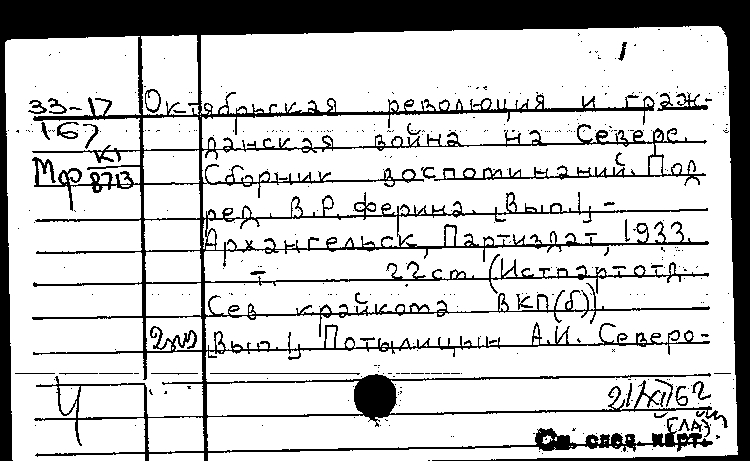 1
33-17
167
Мф К1
8713
Октябрьская революция и граж-
данская война на Севере.
Сборник воспоминаний. Под
ред. В.Р. Ферина. [Вып.1] -
Архангельск, Партиздат, 1933.
т. 22 см. (Истпартотд.
Сев. крайкома ВКП(б)).
2экз [Вып.1] Потылицын А.И. Северо-
Ч
21/XI 62
См. след. карт.